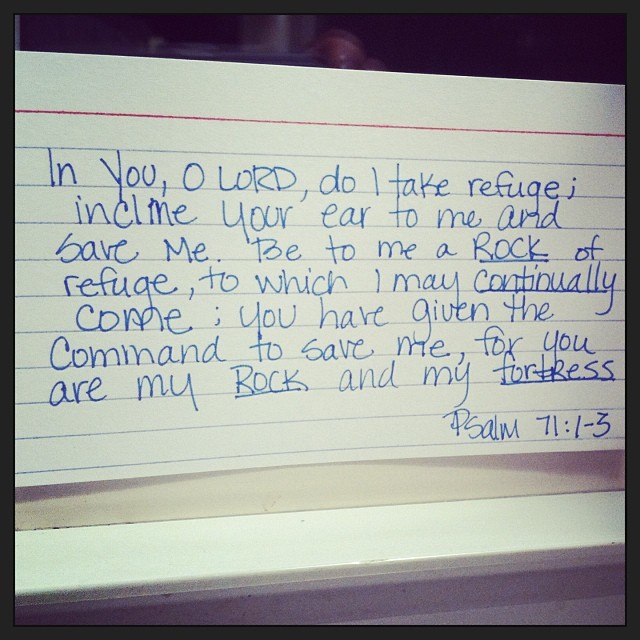 In You, O LORD, do I take refuge;
incline your ear to me and
save me. Be to me a ROCK of
refuge, to which I may continually
come; you have given the
command to save me, for you
are my ROCK and my fortRess
Psalm 71:1-3